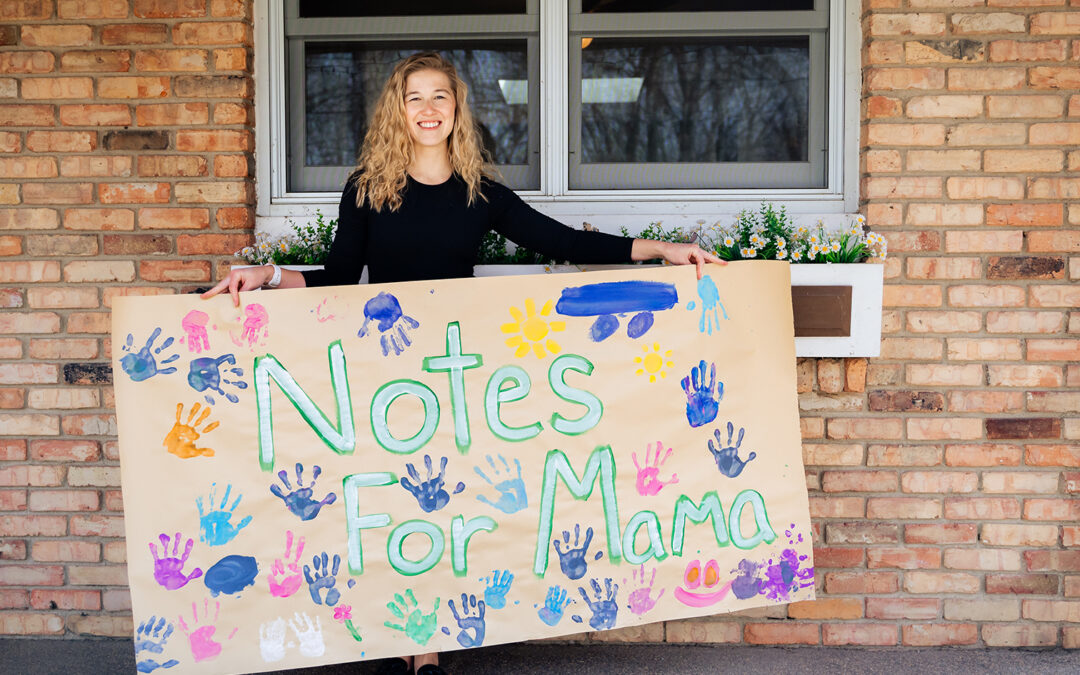 Notes
For Mama